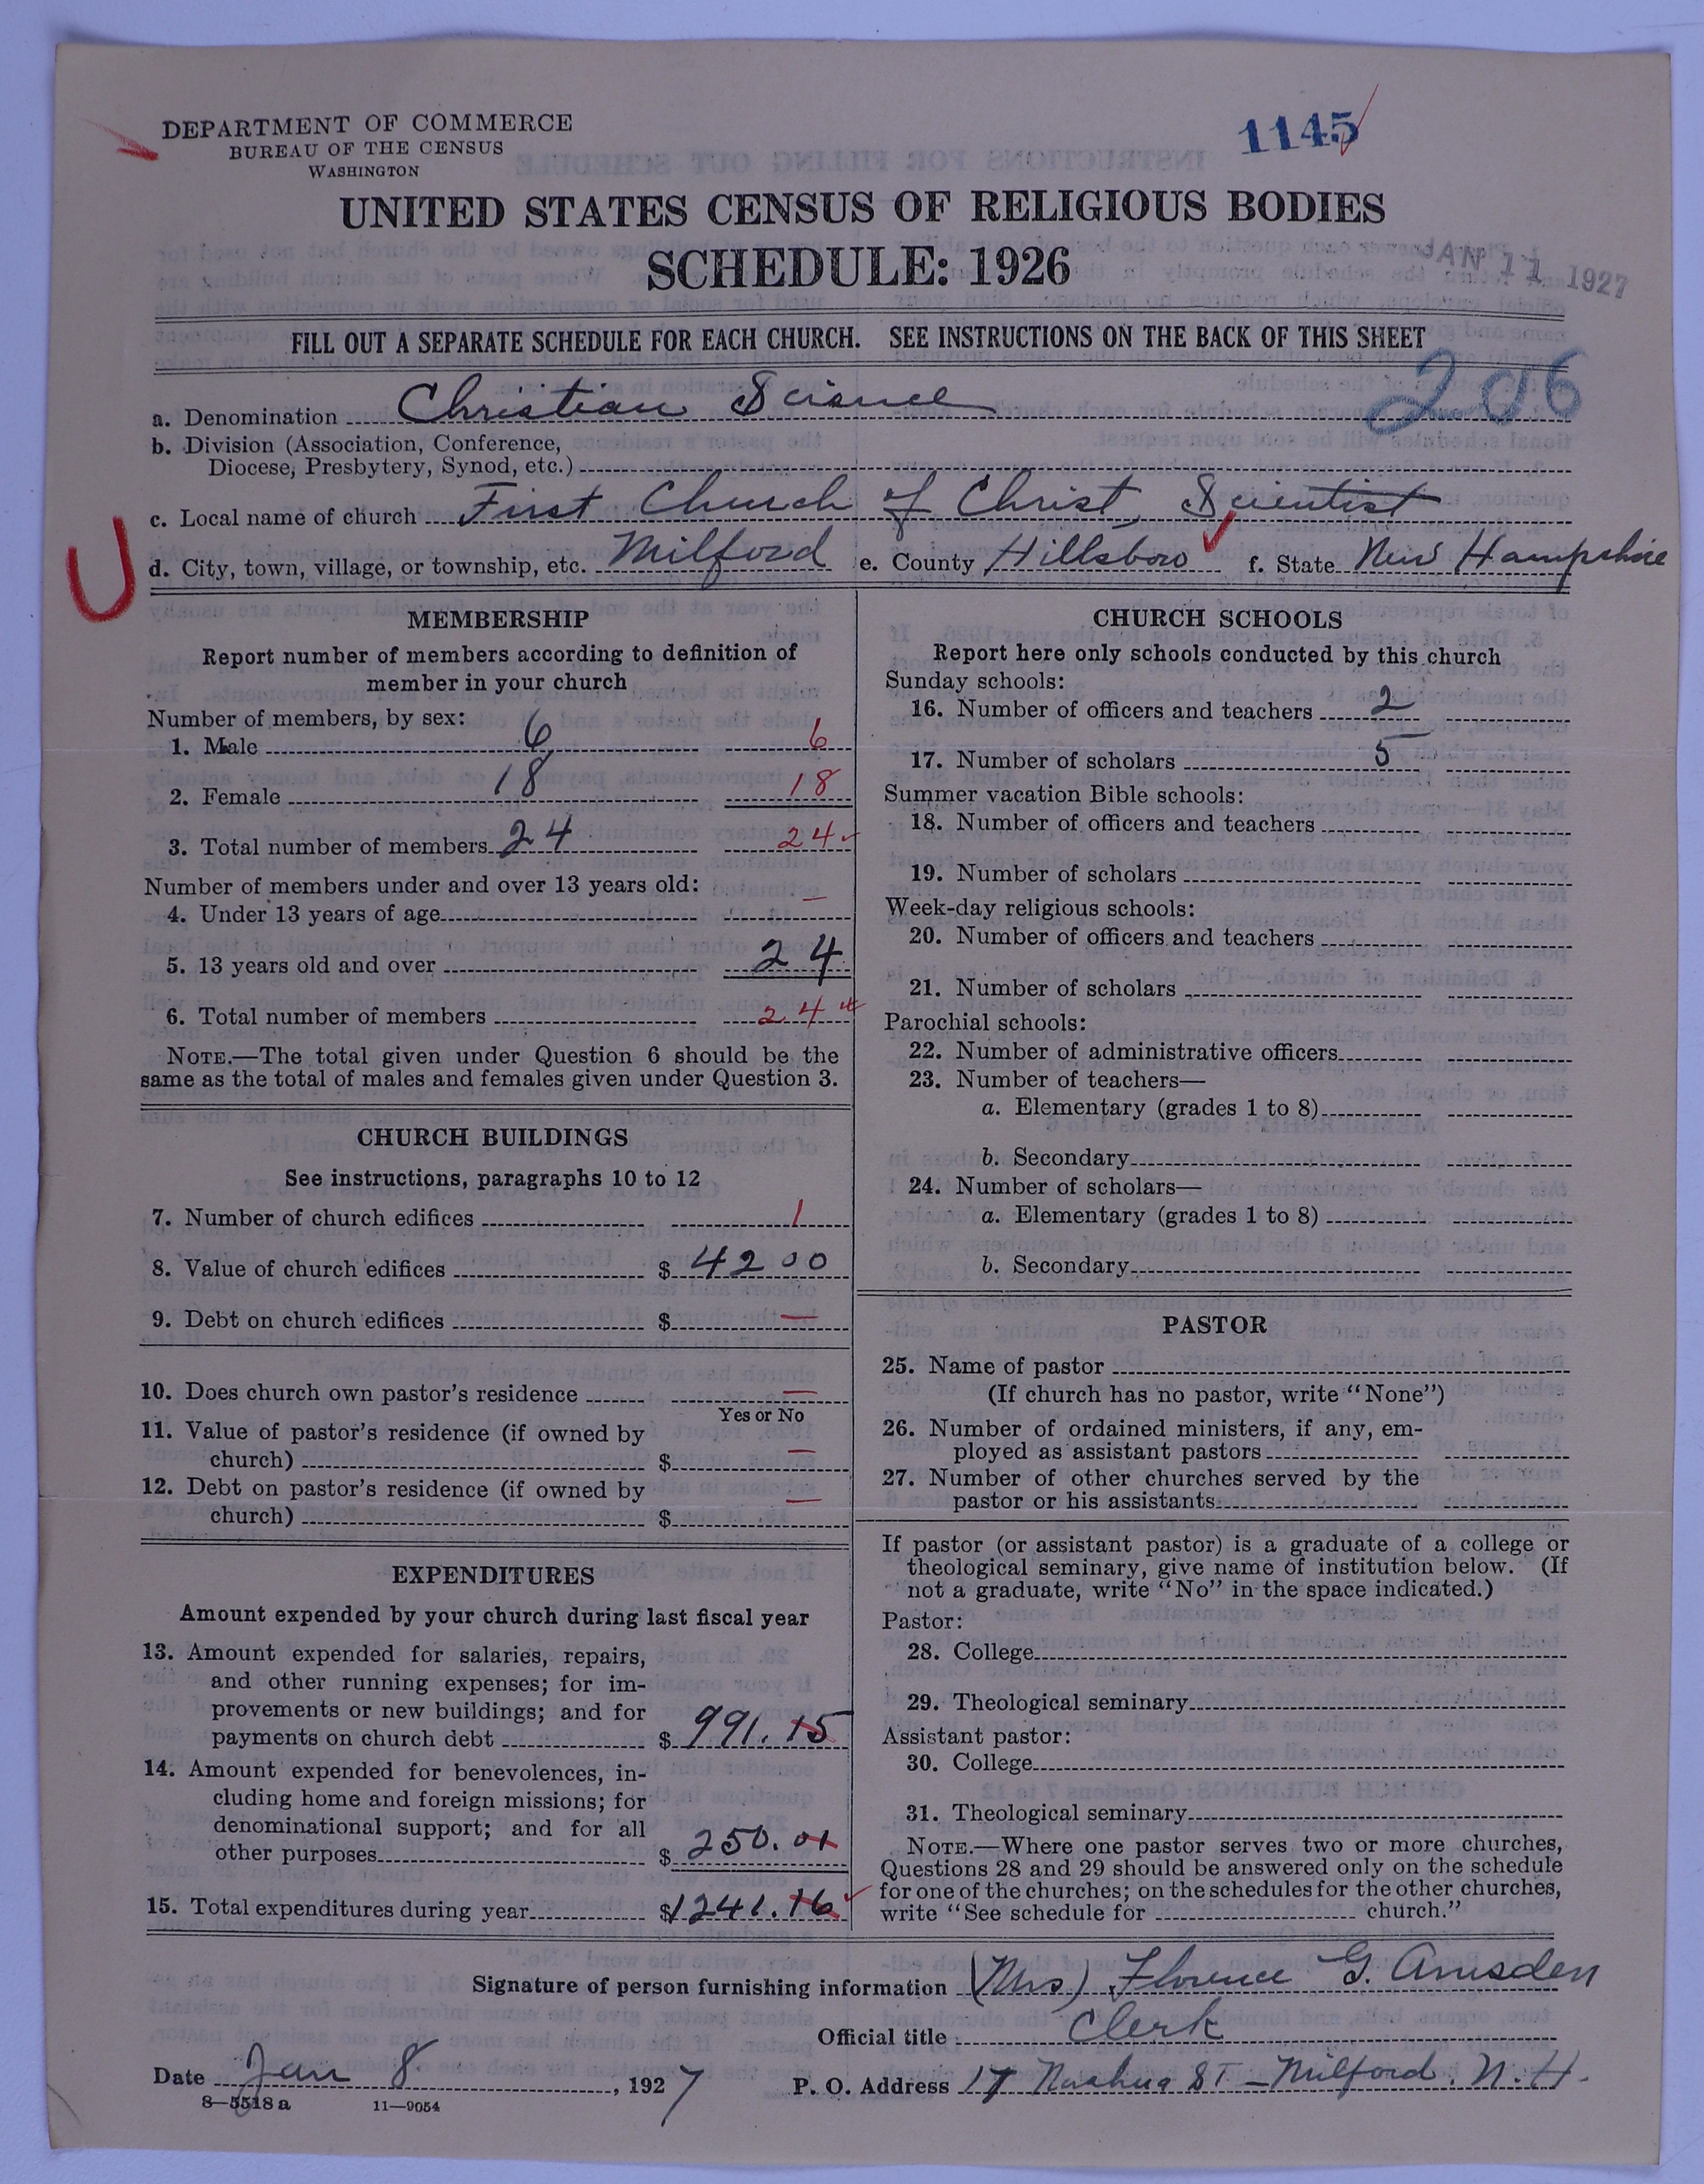 DEPARTMENT OF COMMERCE
BUREAU OF THE CENSUS
WASHINGTON
1145
UNITED STATES CENSUS OF RELIGIOUS BODIES
SCHEDULE: 1926
JAN 11 1927
FILL OUT A SEPARATE SCHEDULE FOR EACH CHURCH. SEE INSTRUCTIONS ON THE BACK OF THIS SHEET
206
a. Denomination Christian Science
b. Division (Association, Conference,
Diocese, Presbytery, Synod, etc.)
c. Local name of church First Church of Christ, Scientist
d. City, town, village, or township, etc. Milford e. County Hillsboro f. State New Hampshire
MEMBERSHIP
Report number of members according to definition of
member in your church
Number of members, by sex:
1. Male 6 6
2. Female 18 18
3. Total number of members 24 24
Number of members under and over 13 years old:
4. Under 13 years of age —
5. 13 years old and over 24
6. Total number of members 24
NOTE.—The total given under Question 6 should be the
same as the total of males and females given under Question 3.
CHURCH BUILDINGS
See instructions, paragraphs 10 to 12
7. Number of church edifices 1
8. Value of church edifices $ 4200
9. Debt on church edifices $ —
10. Does church own pastor's residence —
Yes or No
11. Value of pastor's residence (if owned by
church) $ —
12. Debt on pastor's residence (if owned by
church) $ —
EXPENDITURES
Amount expended by your church during last fiscal year
13. Amount expended for salaries, repairs,
and other running expenses; for im-
provements or new buildings; and for
payments on church debt $ 991.15
14. Amount expended for benevolences, in-
cluding home and foreign missions; for
denominational support; and for all
other purposes $ 250.01
15. Total expenditures during year $1241.16
CHURCH SCHOOLS
Report here only schools conducted by this church
Sunday schools:
16. Number of officers and teachers 2
17. Number of scholars 5
Summer vacation Bible schools:
18. Number of officers and teachers
19. Number of scholars
Week-day religious schools:
20. Number of officers and teachers
21. Number of scholars
Parochial schools:
22. Number of administrative officers
23. Number of teachers—
a. Elementary (grades 1 to 8)
b. Secondary
24. Number of scholars—
a. Elementary (grades 1 to 8)
b. Secondary
PASTOR
25. Name of pastor
(If church has no pastor, write "None")
26. Number of ordained ministers, if any, em-
ployed as assistant pastors
27. Number of other churches served by the
pastor or his assistants
If pastor (or assistant pastor) is a graduate of a college or
theological seminary, give name of institution below. (If
not a graduate, write "No" in the space indicated.)
Pastor:
28. College
29. Theological seminary
Assistant pastor:
30. College
31. Theological seminary
NOTE.—Where one pastor serves two or more churches,
Questions 28 and 29 should be answered only on the schedule
for one of the churches; on the schedules for the other churches,
write "See schedule for church."
Signature of person furnishing information (Mrs) Florence G. Amsden
Official title Clerk
Date Jan 8, 1927 P. O. Address 17 Nashua St - Milford. N.H.
8—5518 a 11—9054